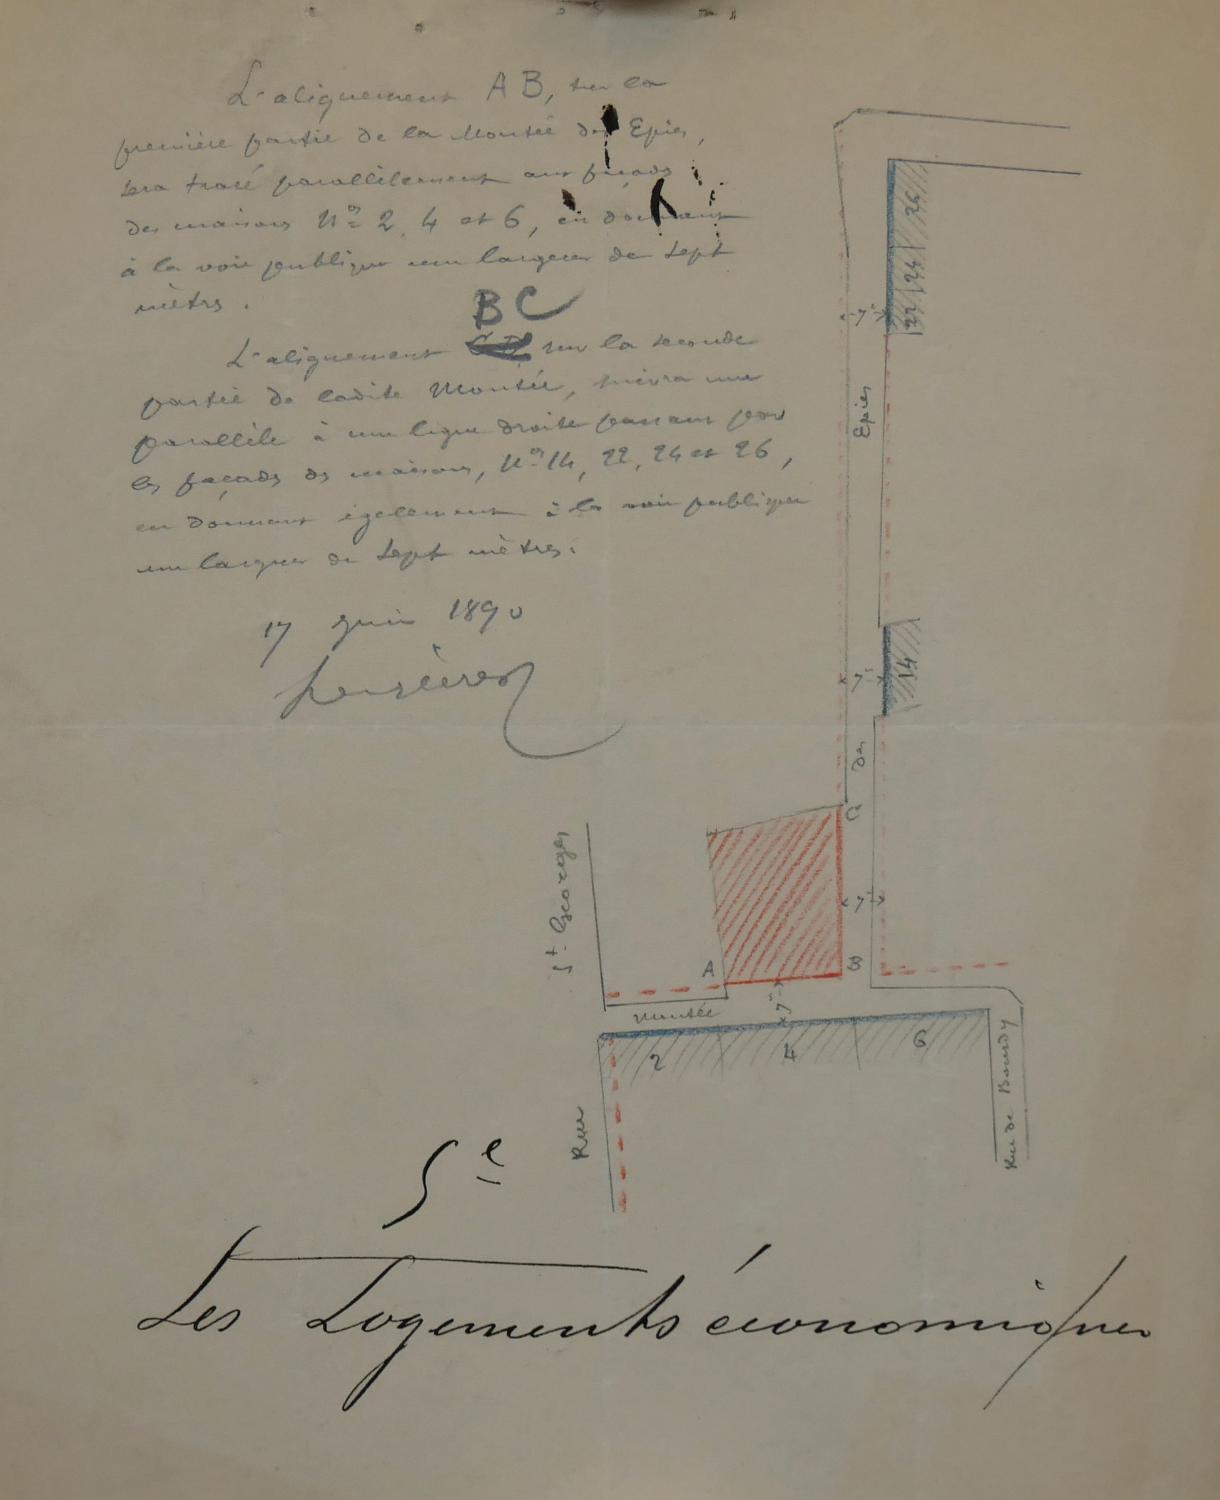 L'alignement AB, sur la
première partie de la Montée des Epies,
sera tracé parallèlement aux façades
des maisons Nos 2, 4 et 6, en donnant
à la voie publique une largeur de sept
mètres.
BC
L'alignement sur la seconde
partie de ladite Montée, suivra une
parallèle à une ligne droite passant par
les façades des maisons, Nos 14, 22, 24 et 26,
en donnant également à la voie publique
une largeur de sept mètres.
17 Juin 1890
26
24
22
7
Epies
14
7
des
C
St Georges
7
A
B
7
Montée
2
4
6
Rue
Rue de Bourdy
Sé
Les Logements économiques